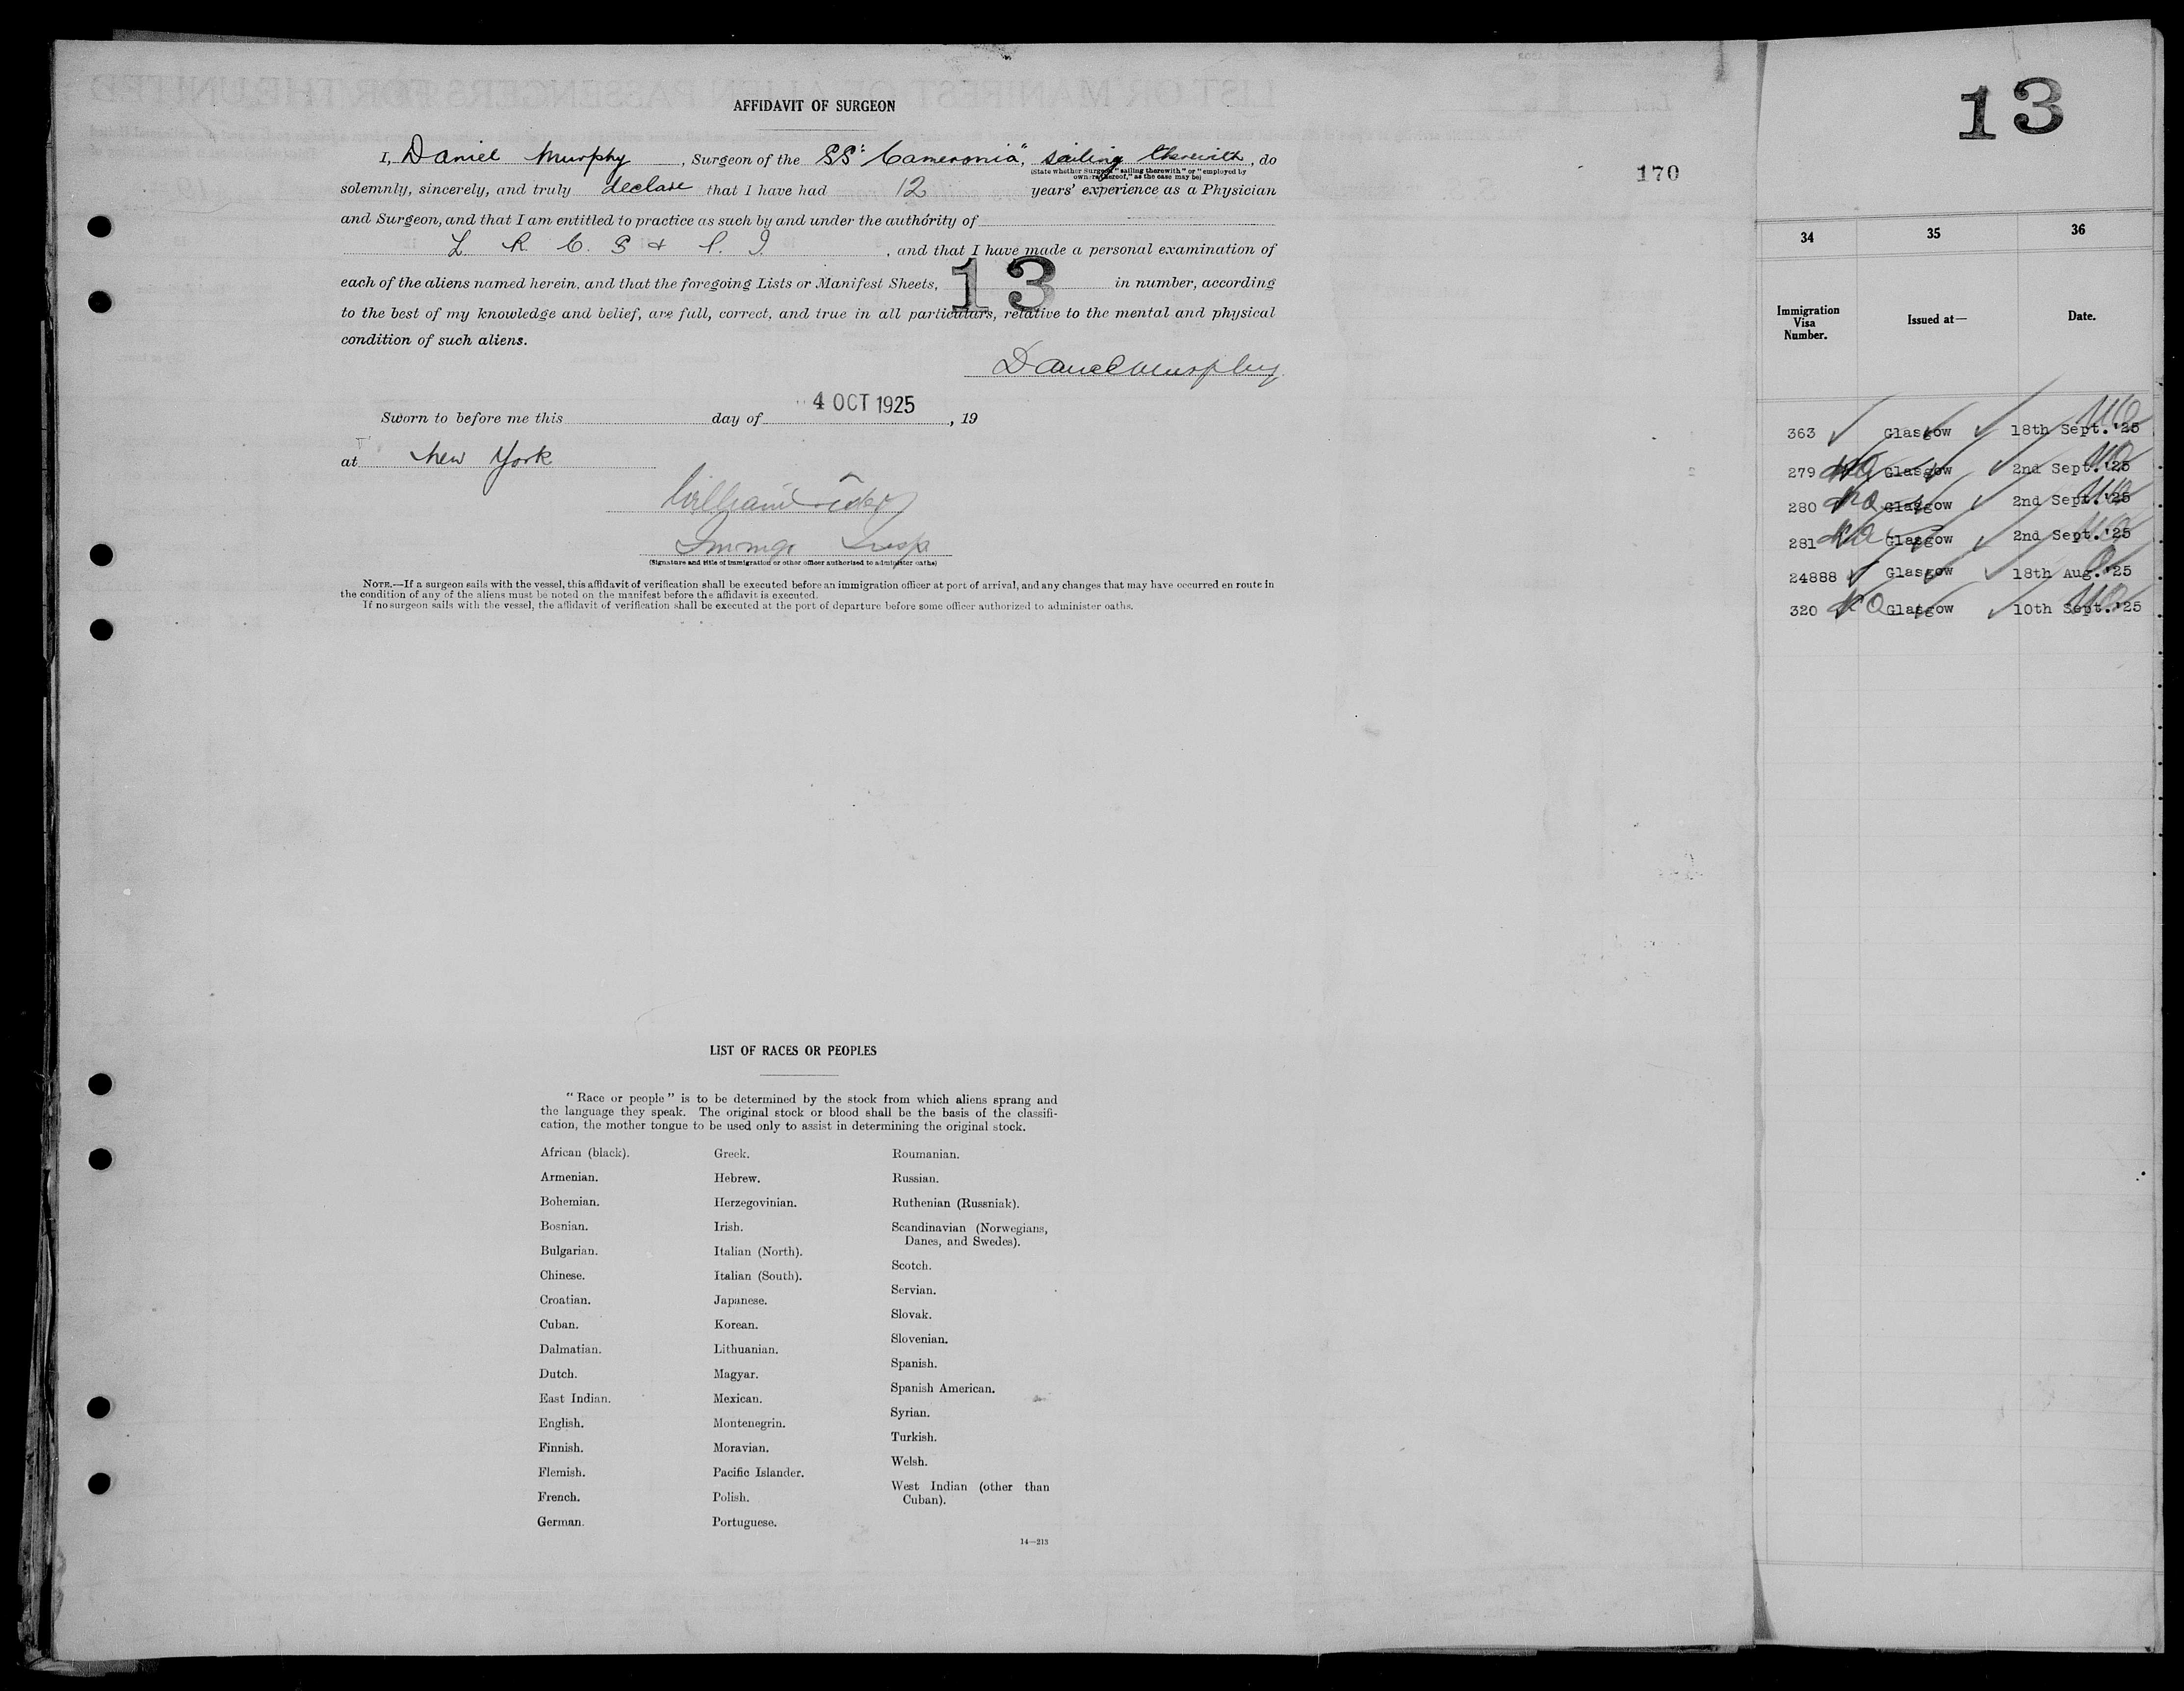 AFFIDAVIT OF SURGEON
I, Daniel Murphy, Surgeon of the SS "Cameronia", sailing therewith, do
(State whether Surgeon "sailing therewith" or "employed by
owners thereof," as the case may be)
solemnly, sincerely, and truly declare that I have had 12 years' experience as a Physician
and Surgeon, and that I am entitled to practice as such by and under the authority of
L. R. C. P. & S. I., and that I have made a personal examination of
each of the aliens named herein, and that the foregoing Lists or Manifest Sheets, 13 in number, according
to the best of my knowledge and belief, are full, correct, and true in all particulars, relative to the mental and physical
condition of such aliens.
Daniel Murphy
Sworn to before me this day of 4 OCT 1925, 19
at New York
William
Immgr Insp
(Signature and title of immigration or other officer authorized to administer oaths)
NOTE.—If a surgeon sails with the vessel, this affidavit of verification shall be executed before an immigration officer at port of arrival, and any changes that may have occurred en route in
the condition of any of the aliens must be noted on the manifest before the affidavit is executed.
If no surgeon sails with the vessel, the affidavit of verification shall be executed at the port of departure before some officer authorized to administer oaths.
LIST OF RACES OR PEOPLES
"Race or people" is to be determined by the stock from which aliens sprang and
the language they speak. The original stock or blood shall be the basis of the classifi-
cation, the mother tongue to be used only to assist in determining the original stock.
African (black).
Armenian.
Bohemian.
Bosnian.
Bulgarian.
Chinese.
Croatian.
Cuban.
Dalmatian.
Dutch.
East Indian.
English.
Finnish.
Flemish.
French.
German.
Greek.
Hebrew.
Herzegovinian.
Irish.
Italian (North).
Italian (South).
Japanese.
Korean.
Lithuanian.
Magyar.
Mexican.
Montenegrin.
Moravian.
Pacific Islander.
Polish.
Portuguese.
Roumanian.
Russian.
Ruthenian (Russniak).
Scandinavian (Norwegians,
Danes, and Swedes).
Scotch.
Servian.
Slovak.
Slovenian.
Spanish.
Spanish American.
Syrian.
Turkish.
Welsh.
West Indian (other than
Cuban).
14—213
170
13
34 35 36
Immigration Visa Number. Issued at— Date.
363 Glasgow 18th Sept.'25
279 Glasgow 2nd Sept.'25
280 Glasgow 2nd Sept.'25
281 Glasgow 2nd Sept.'25
24888 Glasgow 18th Aug.'25
320 Glasgow 10th Sept.'25